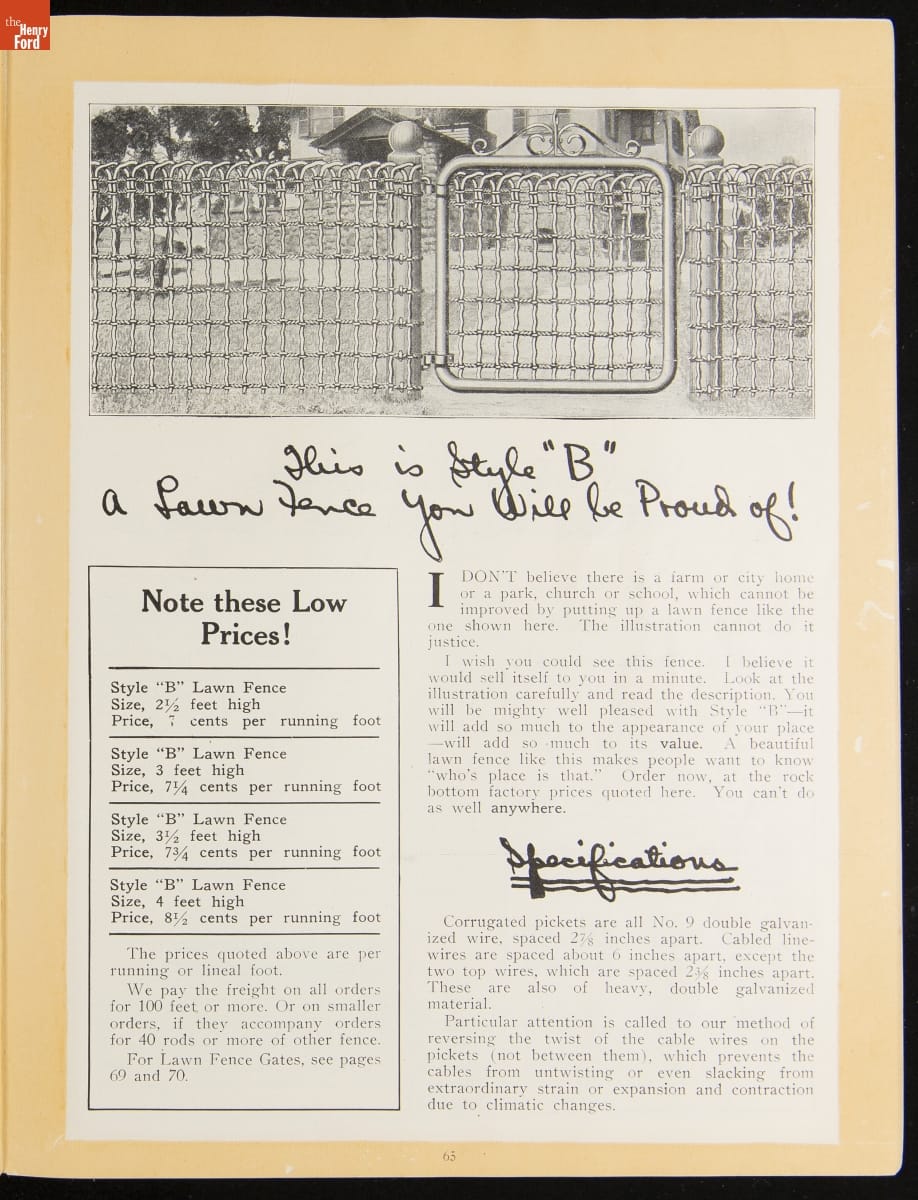 the
Henry
Ford
This is Style "B"
A Lawn Fence You Will be Proud of!
Note these Low
Prices!
Style "B" Lawn Fence
Size, 2½ feet high
Price, 7 cents per running foot
Style "B" Lawn Fence
Size, 3 feet high
Price, 7¼ cents per running foot
Style "B" Lawn Fence
Size, 3½ feet high
Price, 7¾ cents per running foot
Style "B" Lawn Fence
Size, 4 feet high
Price, 8½ cents per running foot
The prices quoted above are per
running or lineal foot.
We pay the freight on all orders
for 100 feet or more. Or on smaller
orders, if they accompany orders
for 40 rods or more of other fence.
For Lawn Fence Gates, see pages
69 and 70.
I DON'T believe there is a farm or city home
or a park, church or school, which cannot be
improved by putting up a lawn fence like the
one shown here. The illustration cannot do it
justice.
I wish you could see this fence. I believe it
would sell itself to you in a minute. Look at the
illustration carefully and read the description. You
will be mighty well pleased with Style "B"—it
will add so much to the appearance of your place
—will add so much to its value. A beautiful
lawn fence like this makes people want to know
"who's place is that." Order now, at the rock
bottom factory prices quoted here. You can't do
as well anywhere.
Specifications
Corrugated pickets are all No. 9 double galvan-
ized wire, spaced 2⅞ inches apart. Cabled line-
wires are spaced about 6 inches apart, except the
two top wires, which are spaced 2⅜ inches apart.
These are also of heavy, double galvanized
material.
Particular attention is called to our method of
reversing the twist of the cable wires on the
pickets (not between them), which prevents the
cables from untwisting or even slacking from
extraordinary strain or expansion and contraction
due to climatic changes.
65